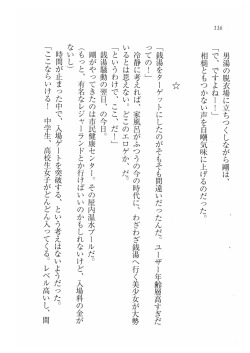 136
男湯の脱衣場に立ちつくしながら剛は、
「で、ですよねー！」
相槌ともつかない声を自嘲気味に上げるのだった。
☆
「銭湯をターゲットにしたのがそもそも間違いだったんだ。ユーザー年齢層高すぎだ
っての！」
冷静に考えれば、家風呂がふつうの今の時代に、わざわざ銭湯へ行く美少女が大勢
いるとは思えない。どこのエロゲか、だ。
「というわけで、ここ、だ！」
銭湯騒動の翌日の、今日。
剛がやってきたのは市民健康センター。その屋内温水プールだ。
（もっと、有名なレジャーランドとか行けばいいのかもしれないけど、入場料の金が
ないし）
時間が止まった中で、入場ゲートを突破する、という考えはないようだった。
「ここならいける！　中学生、高校生女子がどんどん入ってくる。レベル高いし、開